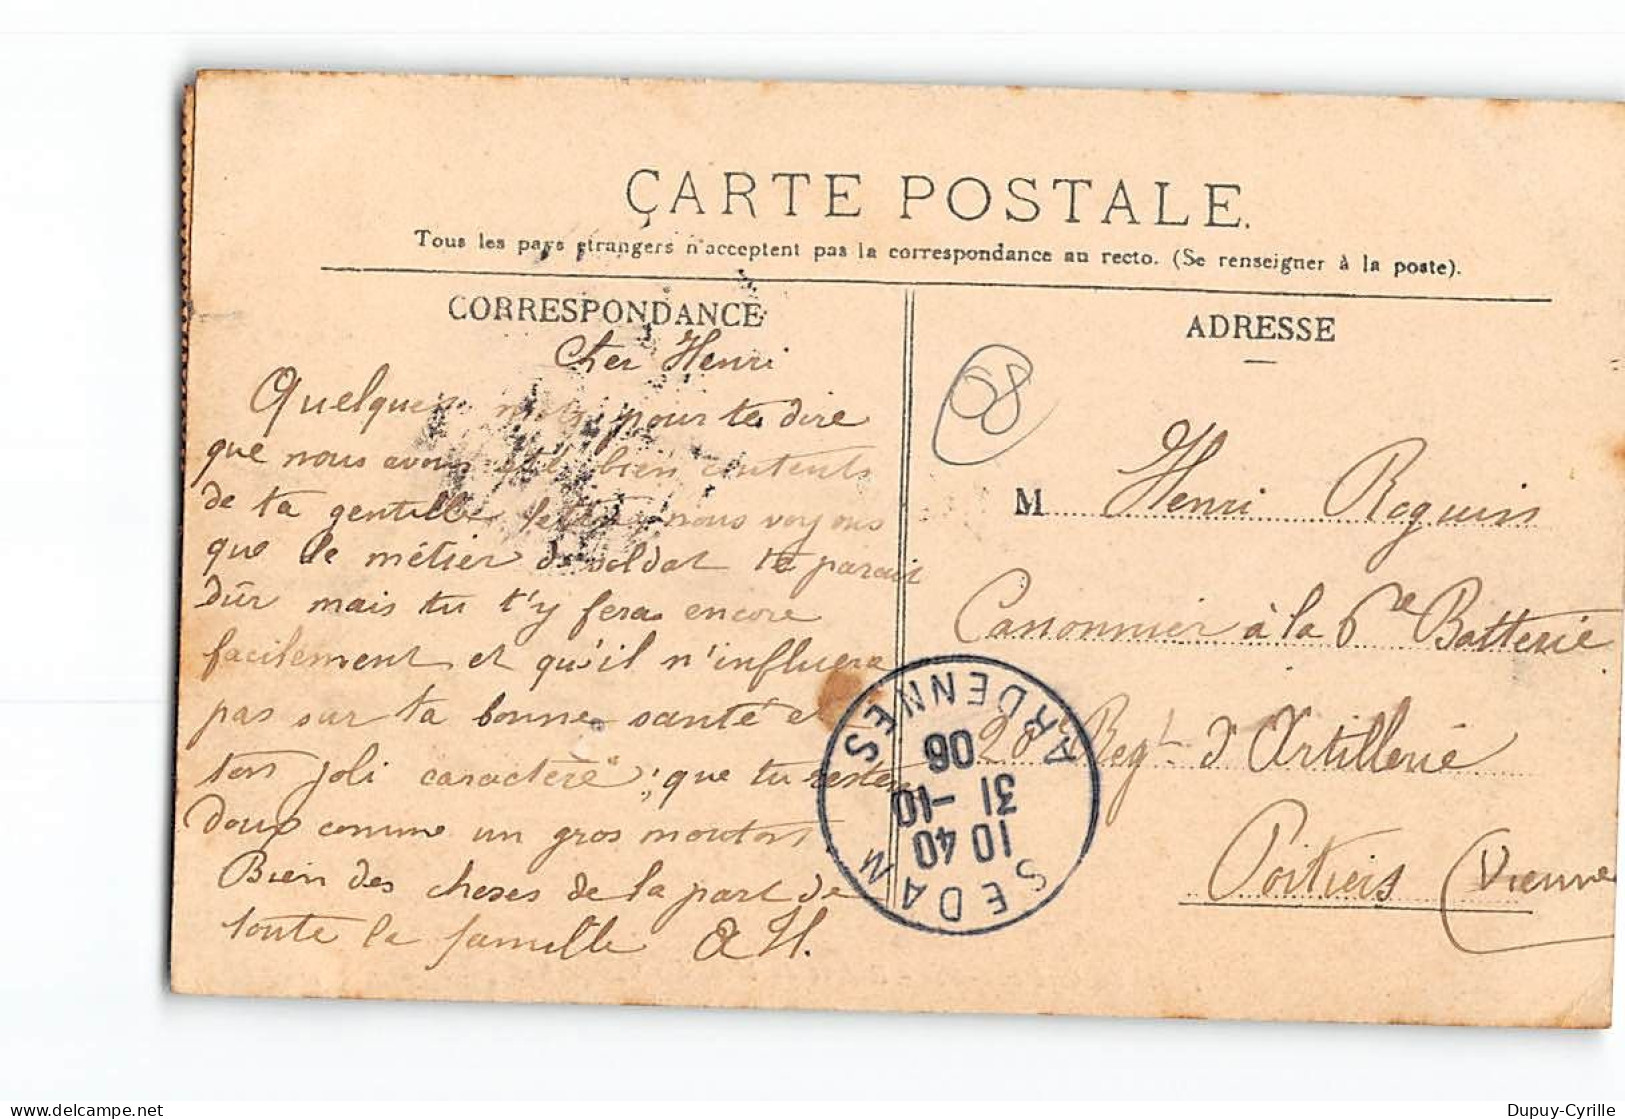 CARTE POSTALE.
Tous les pays étrangers n'acceptent pas la correspondance au recto. (Se renseigner à la poste).
CORRESPONDANCE
Cher Henri
Quelques mots pour te dire
que nous avons été bien contents
de ta gentille lettre, nous voyons
que le métier de soldat te parait
dûr mais tu t'y feras encore
facilement et qu'il n'influera
pas sur ta bonne santé et
ton joli caractère, que tu restera
doux comme un gros mouton
Bien des choses de la part de
toute la famille
ADRESSE
68
M Henri Roguin
Canonnier à la 6e Batterie
20e Regt d'Artillerie
Poitiers (Vienne
SEDAN
10 40
31-10
06
ARDENNES
Dupuy-Cyrille